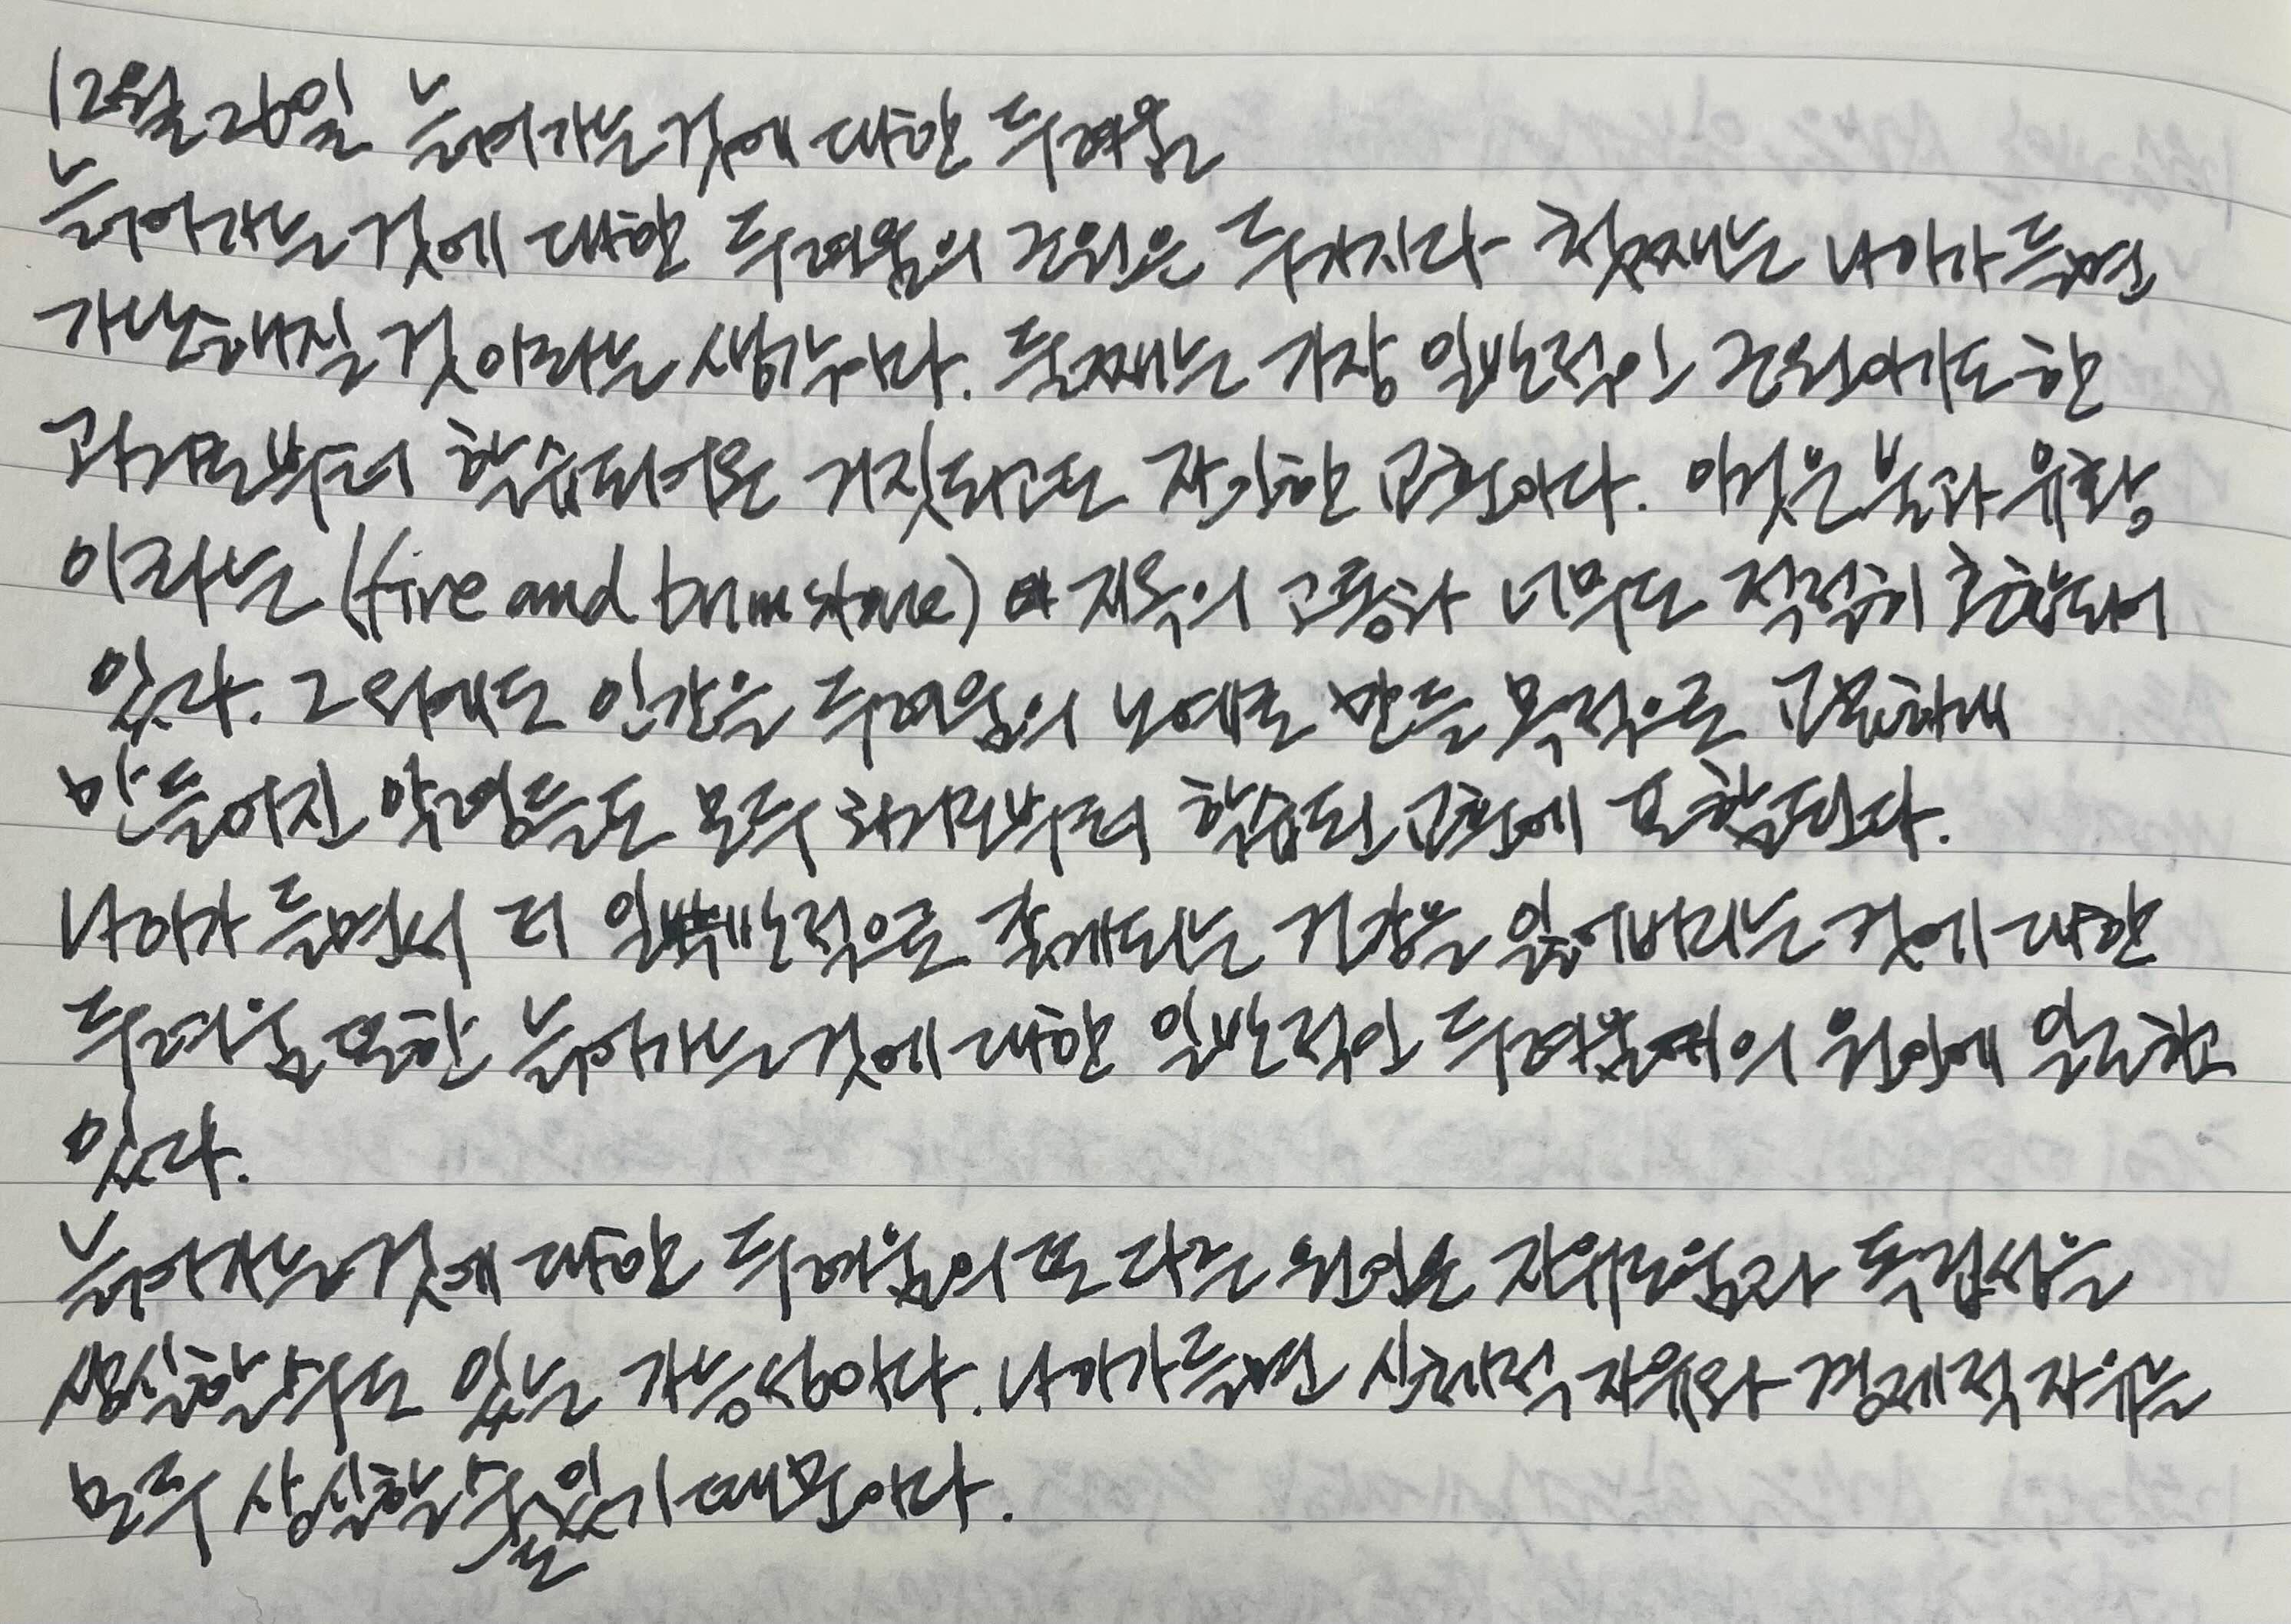 12월 26일 늙어가는 것에 대한 두려움
늙어가는 것에 대한 두려움의 근원은 두가지다 첫째는 나이가 들면
가난해질 것이라는 생각이다. 둘째는 가장 일반적인 근원이기도 한
과거로부터 학습되어온 거짓되고도 잔인한 교훈이다. 이것은 불과 유황
이라는 (fire and brimstone) 지옥의 고통과 너무도 적절히 혼합되어
있다. 그 외에도 인간을 두려움의 노예로 만들 목적으로 교묘하게
만들어진 악령들도 모두 과거로부터 학습된 교훈에 포함된다.
나이가 들면서 더 일반적으로 찾게되는 건강을 잃어버리는 것에 대한
두려움 또한 늙어가는 것에 대한 일반적인 두려움의 원인에 일조하고
있다.
늙어가는 것에 대한 두려움의 또 다른 원인은 자유로움과 독립성을
상실할 수도 있는 가능성이다. 나이가 들면 신체적 자유와 경제적 자유를
모두 상실할 수도 있기 때문이다.